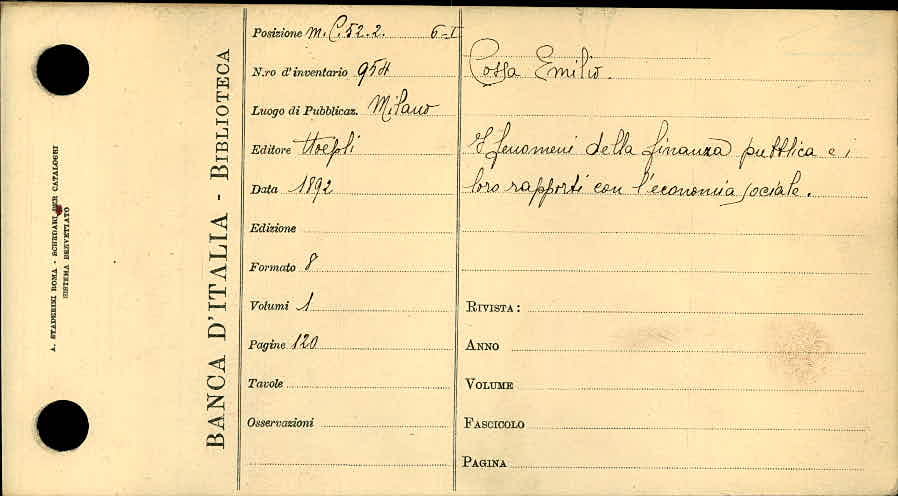 A. STADERINI ROMA - SCHEDARI PER CATALOGHI
SISTEMA BREVETTATO
BANCA D'ITALIA - BIBLIOTECA
Posizione M. C. 52. 2. 6-I
N.ro d'inventario 954
Luogo di Pubblicaz. Milano
Editore Hoepli
Data 1892
Edizione
Formato 8
Volumi 1
Pagine 120
Tavole
Osservazioni
Cossa Emilio.
I fenomeni della finanza pubblica e i
loro rapporti con l'economia sociale.
RIVISTA:
ANNO
VOLUME
FASCICOLO
PAGINA